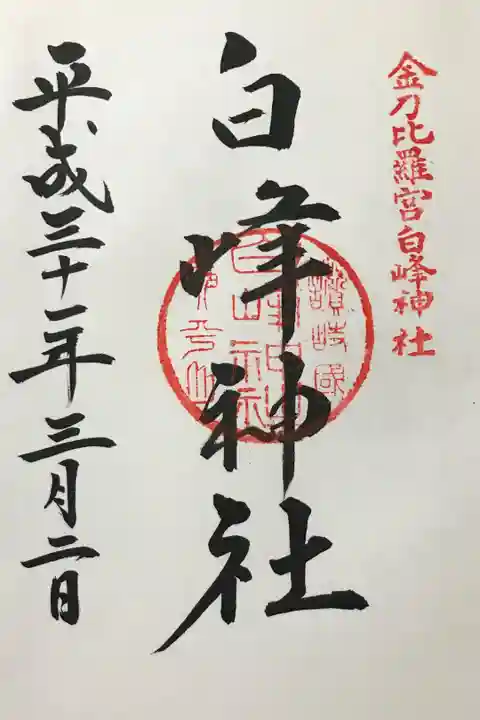 金刀比羅宮白峰神社
白峰神社
讃岐國
平成三十一年三月二日